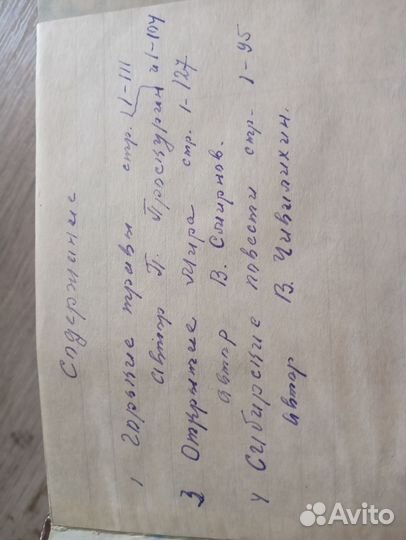 Содержание
1 Горькие травы стр. 1-111
автор П. Проскурин и 1-104
3 Открытие мира стр. 1-127
автор В. Смирнов.
4 Сибирские повести стр. 1-95
автор В. Чивилихин.
Avito